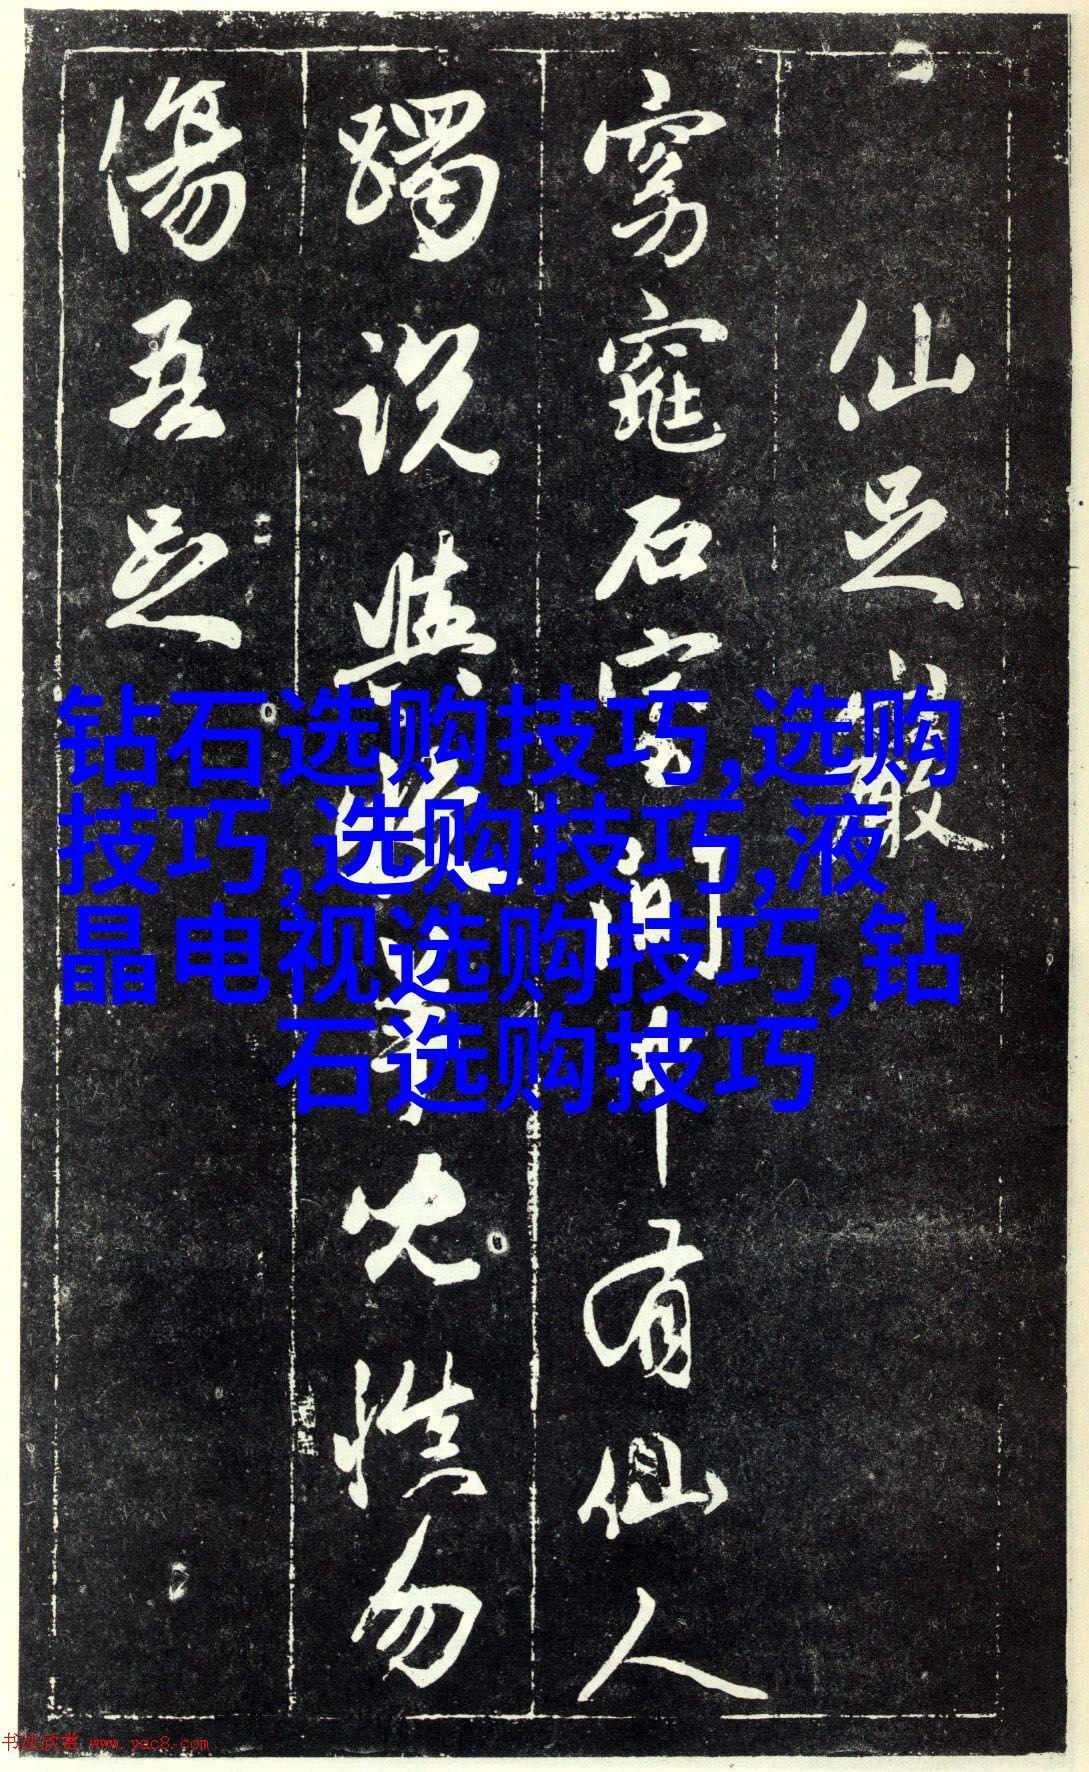 仙足巖
窈窕石室間中有仙人
躅說與 勿
傷吾足
钻石选购技巧,选购
技巧,选购技巧,液
晶电视选购技巧,钻
石选购技巧
书法欣赏 www.yac8.com